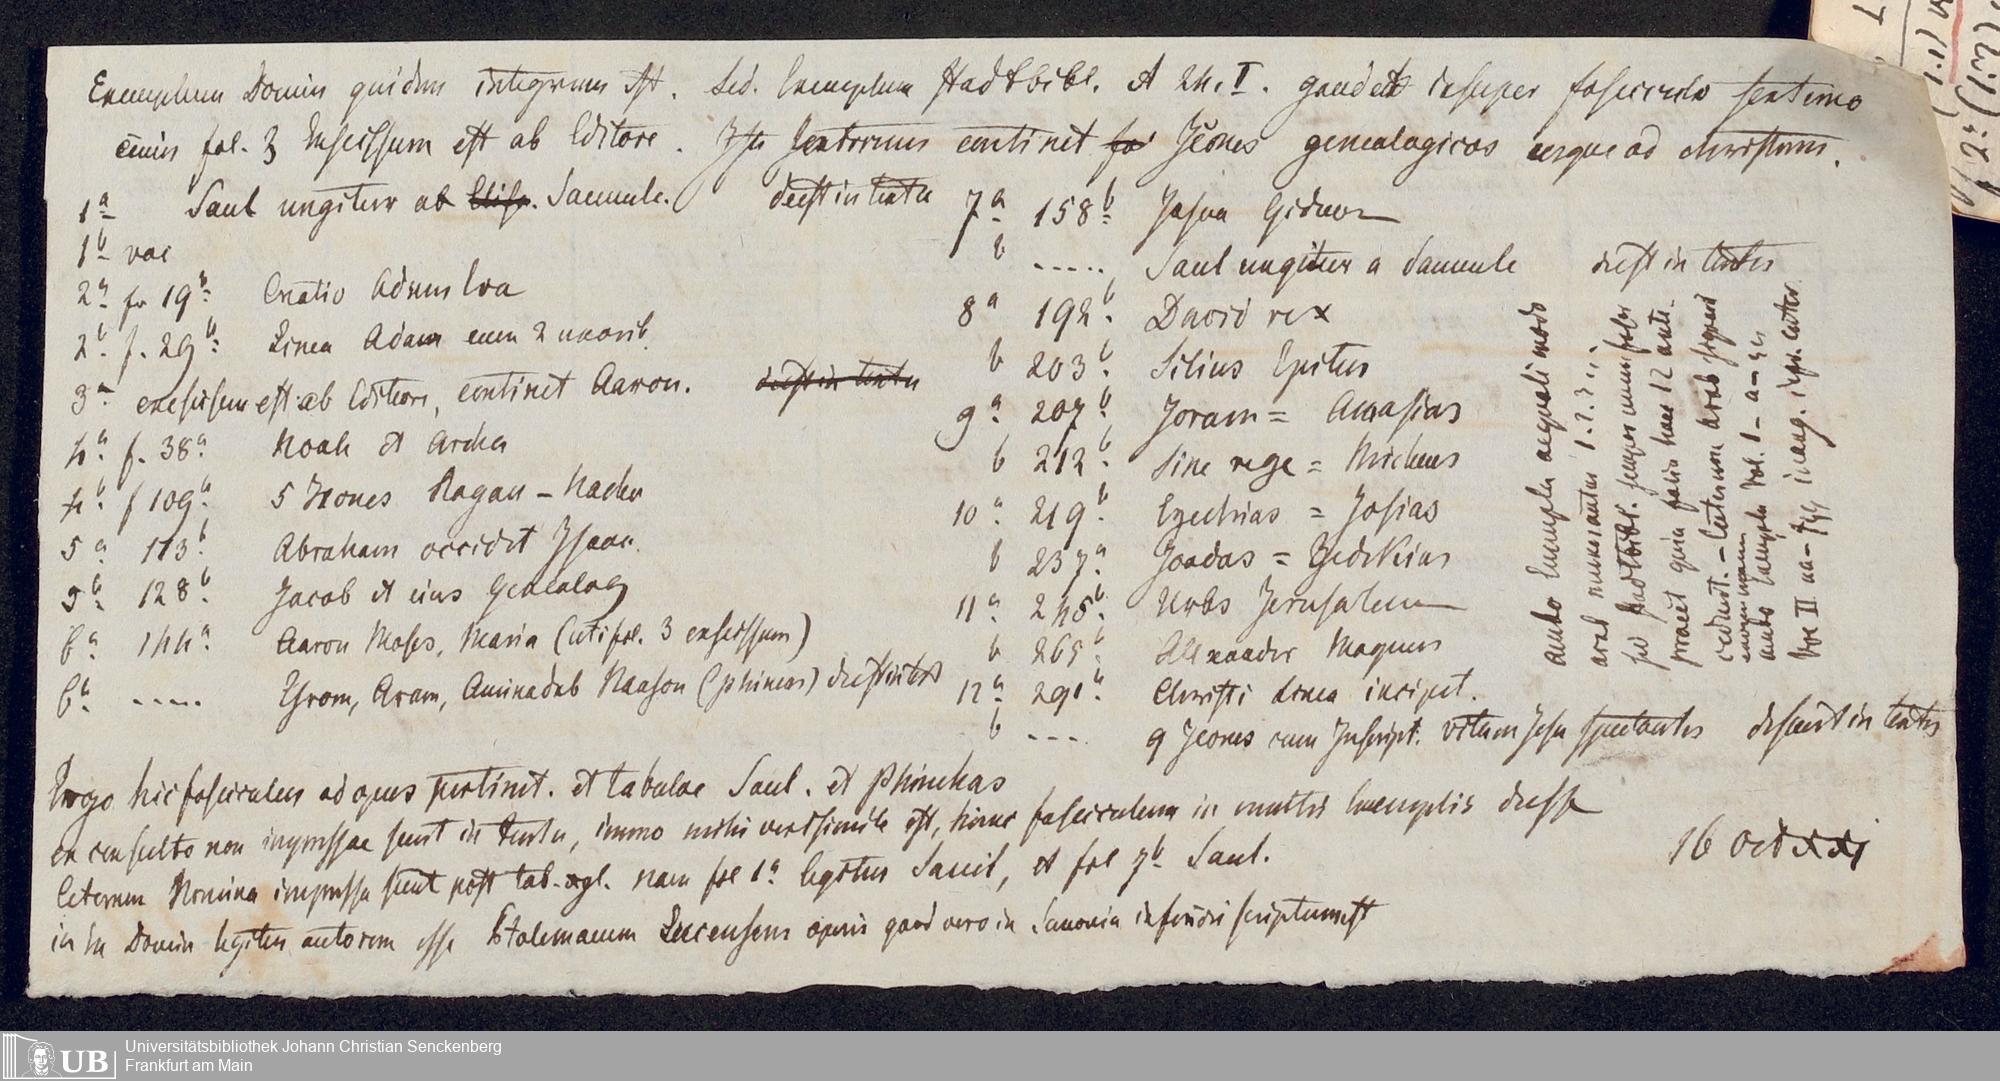 Exemplum Domin quidem integrum est. Sed. Exemplum Stadtbibl. A 24. I. gaudet insuper fasciculo sexterno
cuius fol. 3 Exscissum est ab Editore. Iste sexternus continet Icones genealogicas usque ad christum.
1a Saul ungitur ab Samuele. deest in textu
1b vac
2a fo 19b Creatio Adam Eva
2b f. 29b Linea Adam cum 2 uxorib.
3a exscissum est ab Editore, continet Aaron. deest in textu
4a f. 38a Noah et Archa
4b f 109b 5 Icones Ragau - Nachor
5a 113b Abraham occidit Isaac.
5b 128b Jacob et eius Genealog
6a 144a Aaron Moses, Maria (uti fol. 3 exscissum)
6b ..... Esrom, Aram, Aminadab Naason (phinees) deest in textu
7a 158b Josua Gideon
b ..... Saul ungitur a Samuele deest in textu
8a 192b David rex
b 203b Silius Epitus
9a 207b Joram = Amasias
b 212b Sine rege = Micheus
10a 219b Ezechias = Josias
b 237a Joadas = Zedekias
11a 245b Urbs Jerusalem
b 265b Alexander Magnus
12a 291b Christi Linea incipit.
b .... 9 Icones cum Inscript. vitam Jesu spectantes desunt in textu
ambo Exempla aequali modo
arab numerantur 1. 2. 3
sed Stadtbibl. semper
praeit quia folia haec 12 ante
Ceterum arab
ambo Exempla Vol. 1 - a - zz
Vol II aa -
Ergo hic fasciculus ad opus pertinet. et tabulae Saul. et Phinehas
ex consulto non impressae sunt in textu, immo mihi verisimile est, hunc fasciculum in multis Exemplis deesse
Ceterum Nomina impressa sunt post tab. xyl. nam fol 1a legitur Sauil, et fol 7b Saul.
in Ex Domin legitur autorem esse Ptolemaeum Lucensem operis quod vero in scriptum est
16 oct xxi
Universitätsbibliothek Johann Christian Senckenberg
Frankfurt am Main
UB